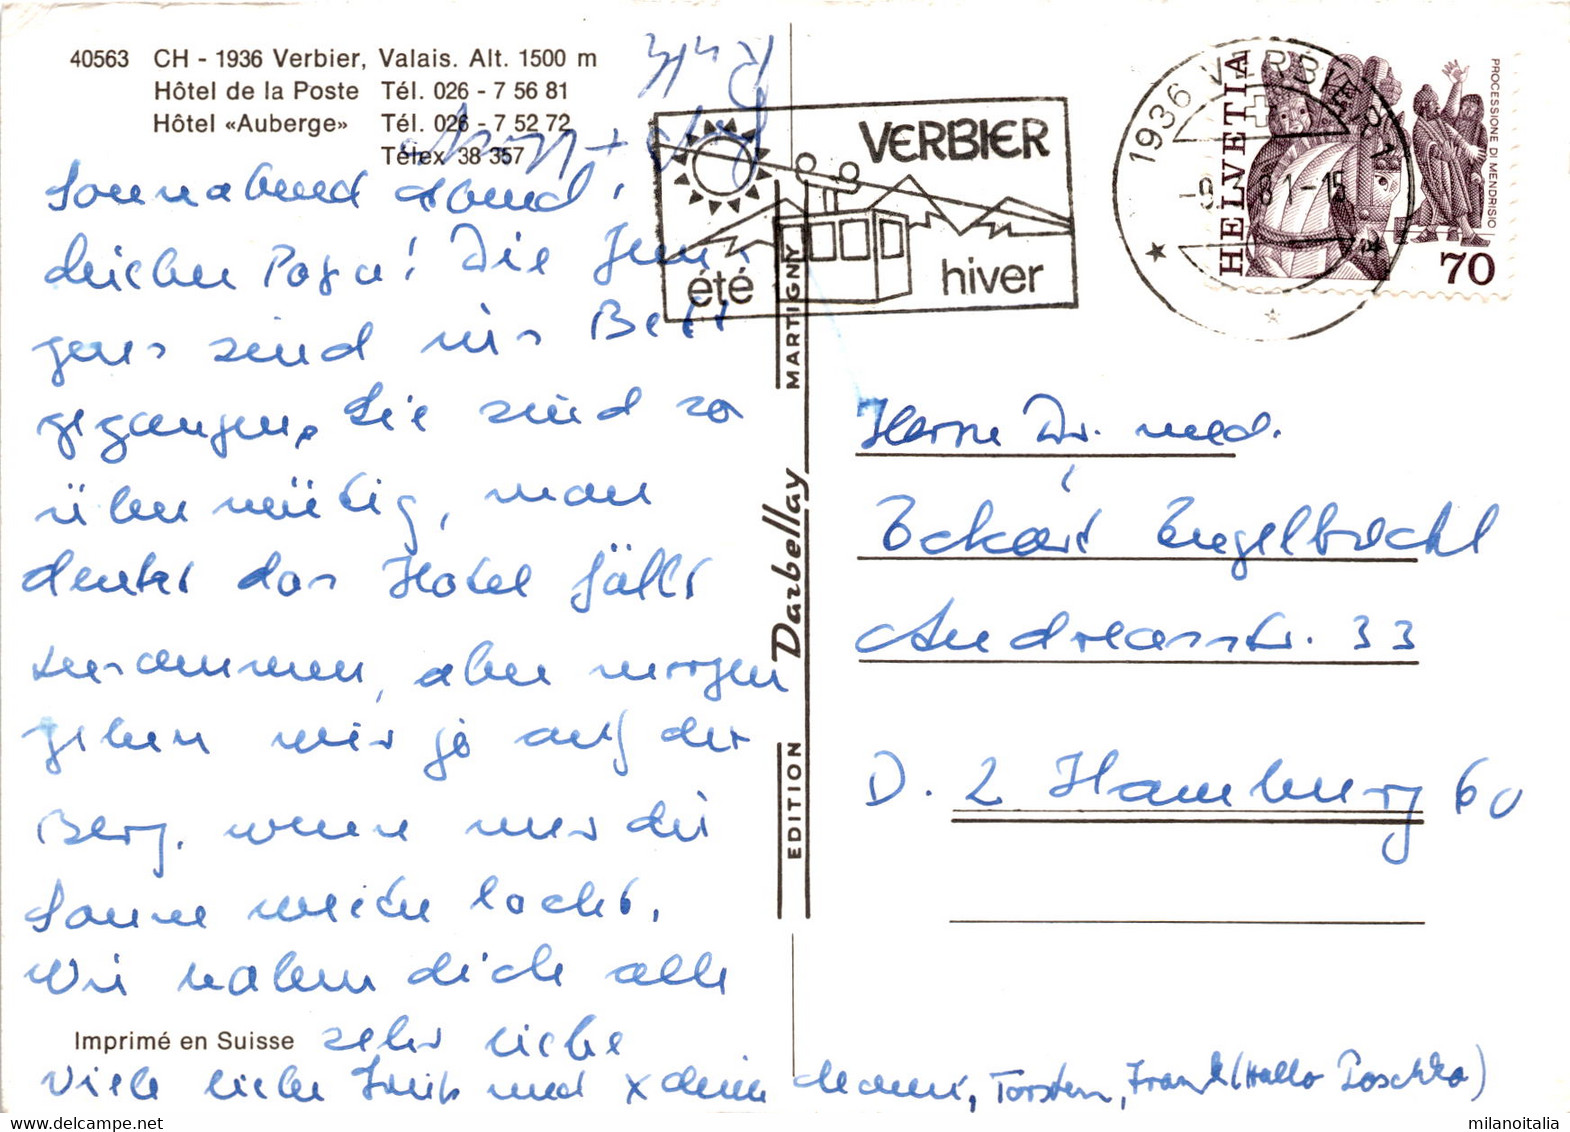 40563 CH - 1936 Verbier, Valais. Alt. 1500 m
Hôtel de la Poste Tél. 026 - 7 56 81
Hôtel «Auberge» Tél. 026 - 7 52 72
Télex 38 357
Sonnabend abend,
lieber Papa! Die Jun-
gens sind ins Bett
gegangen. Sie sind so
übermütig, man
denkt das Hotel fällt
zusammen, aber morgen
gehen wir ja auf den
Berg, wenn uns die
Sonne weiter lacht.
Wir haben dich alle
sehr liebe
Viele liebe Grüße und x deine Mami, Torsten, Frank (Hallo Paschka)
Imprimé en Suisse
EDITION Darbellay MARTIGNY
VERBIER
été hiver
1936 VERBIER
HELVETIA
70
PROCESSIONE DI MENDRISIO
Herrn Dr. med.
Eckart Engelbrecht
Andreasstr. 33
D. 2 Hamburg 60
milanoitalia